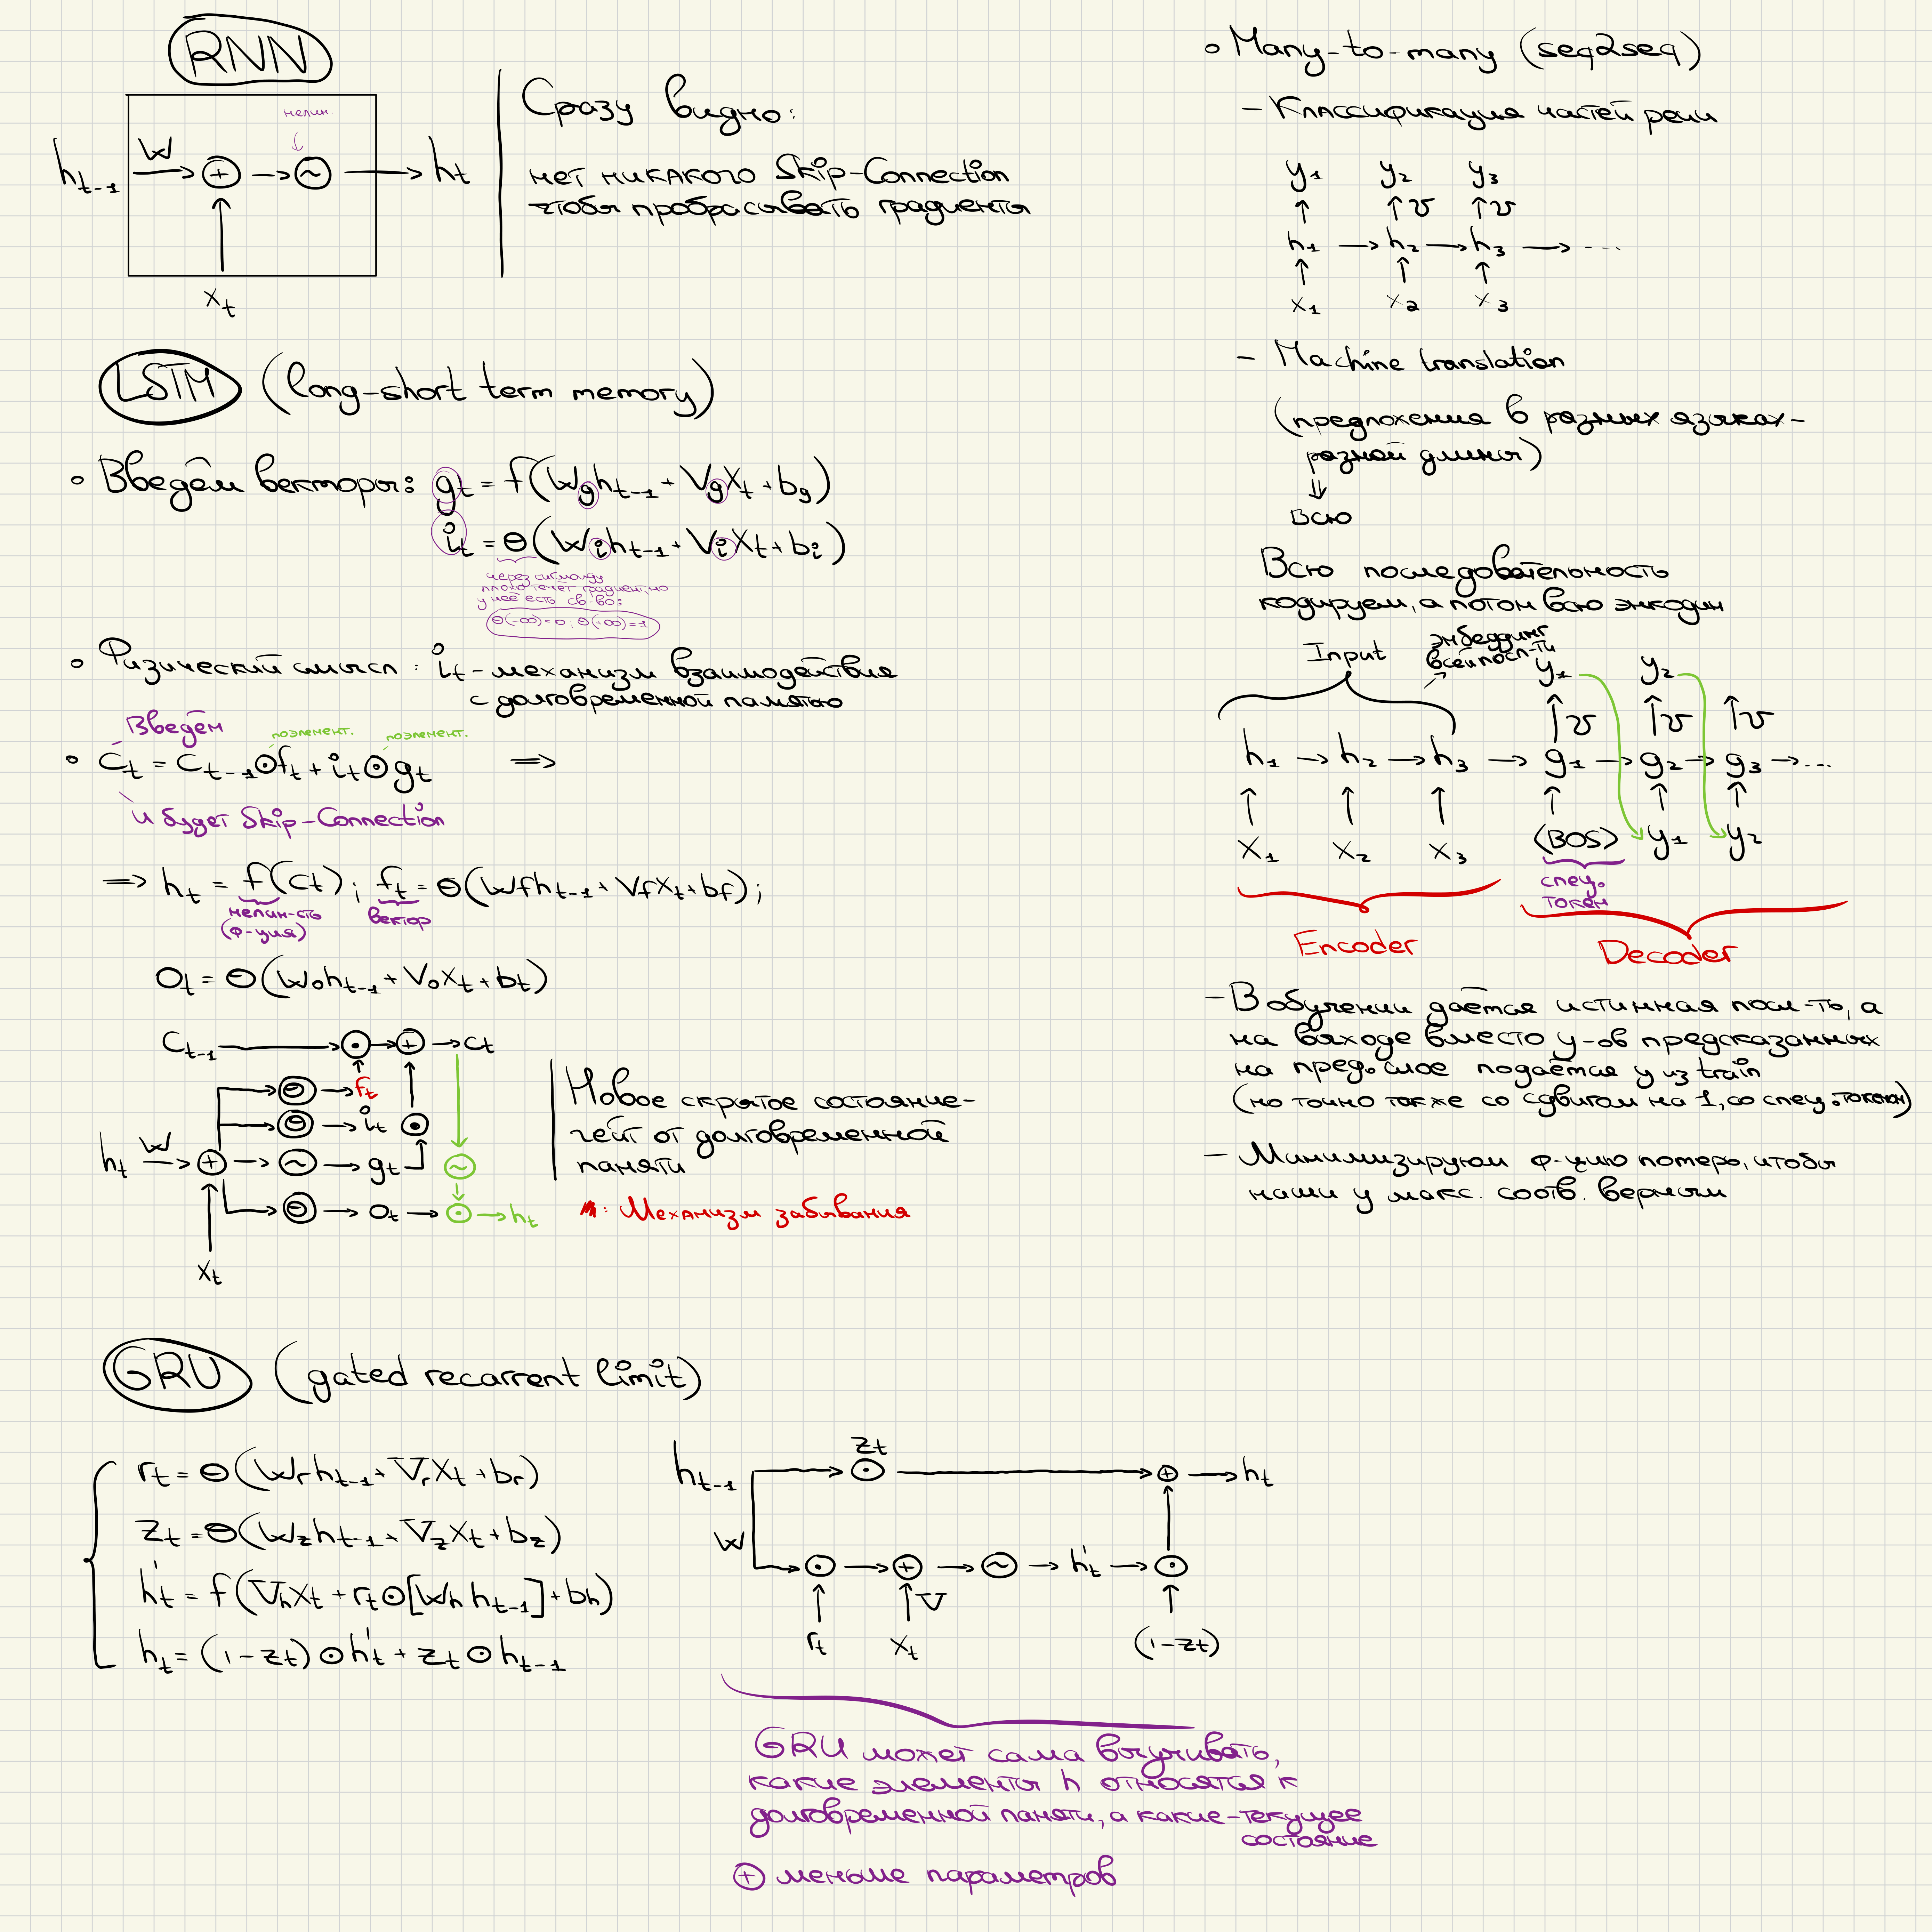 RNN
нелин.
h_{t-1} W → ⊕ → ~ → h_t
x_t
Сразу видно:
нет никакого Skip-Connection
чтобы пробрасывать градиенты
LSTM (long-short term memory)
• Введём векторы: g_t = f(W_g h_{t-1} + V_g x_t + b_g)
i_t = Θ(W_i h_{t-1} + V_i x_t + b_i)
через сигмоиду
плохо течёт градиент, но
у неё есть св-во:
Θ(-∞)=0, Θ(+∞)=1
• Физический смысл: i_t - механизм взаимодействия
с долговременной памятью
Введём
поэлемент. поэлемент.
• C_t = C_{t-1} ⊙ f_t + i_t ⊙ g_t ⟹
и будет Skip-Connection
⟹ h_t = f(c_t); f_t = Θ(W_f h_{t-1} + V_f x_t + b_f);
нелин-сть вектор
(ф-ция)
O_t = Θ(W_o h_{t-1} + V_o x_t + b_t)
C_{t-1} → ⊙ → ⊕ → c_t
Θ → f_t
Θ → i_t ⊙
h_t W → ⊕ → ~ → g_t ~
Θ → o_t → ⊙ → h_t
x_t
Новое скрытое состояние-
гейт от долговременной
памяти
: Механизм забывания
GRU (gated recarrent limit)
r_t = Θ(W_r h_{t-1} + V_r x_t + b_r)
z_t = Θ(W_z h_{t-1} + V_z x_t + b_z)
h'_t = f(V_h x_t + r_t ⊙ [W_h h_{t-1}] + b_h)
h_t = (1-z_t) ⊙ h'_t + z_t ⊙ h_{t-1}
z_t
h_{t-1} → ⊙ → ⊕ → h_t
W
⊙ → ⊕ → ~ → h'_t → ⊙
V
r_t x_t (1-z_t)
GRU может сама выучивать,
какие элементы h относятся к
долговременной памяти, а какие-текущее
состояние
⊕ меньше параметров
• Many-to-many (seq2seq)
- Классификация частей речи
y_1 y_2 y_3
↑ ↑v ↑v
h_1 → h_2 → h_3 → ...
x_1 x_2 x_3
- Machine translation
(предложения в разных языках-
разной длины)
⇓
Всю
Всю последовательность
кодируем, а потом всю энкодим
Input
эмбеддинг
всей посл-ти
y_1 y_2
↑v ↑v ↑v
h_1 → h_2 → h_3 → g_1 → g_2 → g_3 → ...
x_1 x_2 x_3 (BOS) y_1 y_2
спец.
токен
Encoder Decoder
- В обучении даётся истинная посл-ть, а
на выходе вместо y-ов предсказанных
на пред. слое подаётся y из train
(но точно также со сдвигом на 1, со спец. токеном)
- Минимизируем ф-цию потерь, чтобы
наши y макс. соотв. верным